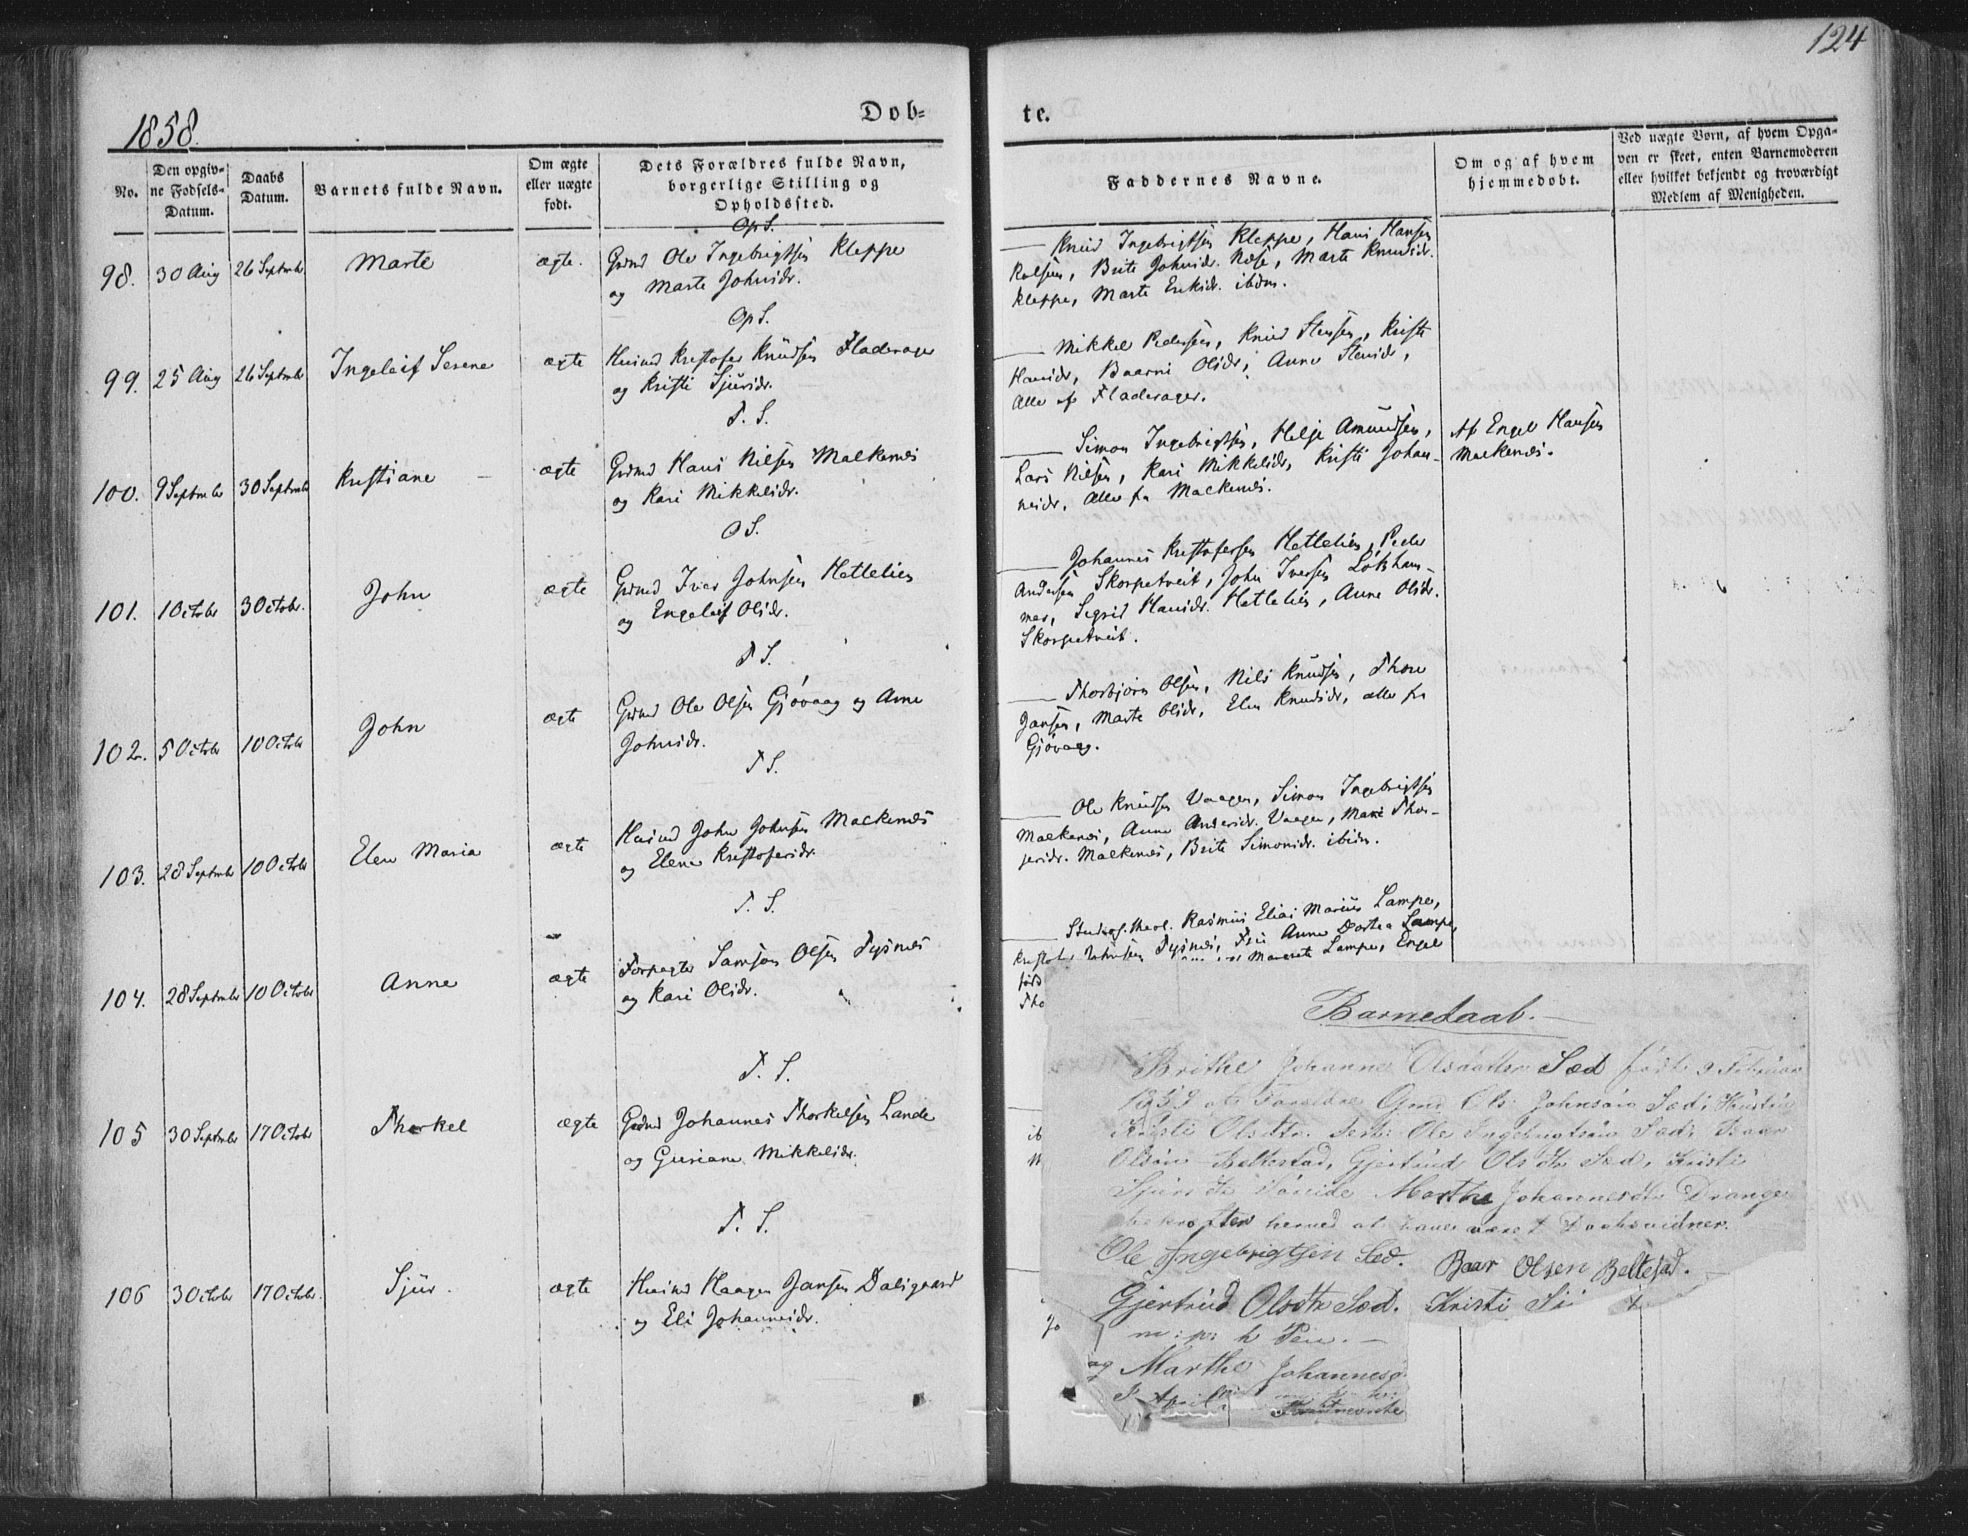 124
1858.
Dob-
te.
No.
Den opgiv-
ne Fødsels-
Datum.
Daabs
Datum.
Barnets fulde Navn.
Om ægte
eller uægte
født.
Dets Forældres fulde Navn,
borgerlige Stilling og
Opholdssted.
Faddernes Navne.
Om og af hvem
hjemmedøbt.
Ved uægte Børn, af hvem Opga-
ven er skeet, enten Barnemoderen
eller hvilket bekjendt og troværdigt
Medlem af Menigheden.
Op S.
98. 30 Aug 26 Septmbr Marte ægte. Grdmd Ole Ingebrigtsen Kleppe
og Marte Johnsdr.
Knud Ingebrigtsen Kleppe, Hans Hansen
Rolsen, Brite Johnsdr. Røse, Marte Knudsdr.
Kleppe, Marte Eriksdr. ibidm.
Op S.
99. 25 Aug 26 Septmbr Ingeleif Serene ægte Husmd Kristofer Knudsen Fladerager
og Kristi Sjursdr.
Mikkel Pedersen, Knud Stensen, Kristi
Hansdr, Baarni Olsdr, Anne Stensdr,
Alle af Fladerager.
T. S.
100. 9 Septmbr 30 Septmbr Kristiane ægte Grdmd Hans Nilsen Malkenæs
og Kari Mikkelsdr.
Simon Ingebrigtsen, Helje Amundsen,
Lars Nilsen, Kari Mikkelsdr, Kristi Johan-
nesdr, Alle fra Mackenæs.
Af Engel Hansen
Mackenæs.
O S.
101. 1 Octobr 3 Octobr. John ægte Grdmd Iver Johnsen Hettelien
og Engeleif Olsdr.
Johannes Kristofersen Hettelien, Peder
Andersen Skorpetveit, John Iversen Løkham-
mer, Sigrid Hansdr. Hettelien, Anne Olsdr.
Skorpetveit.
T S.
102. 5 Octobr 10 Octobr John ægte Grdmd Ole Olsen Gjøvaag og Anne
Johnsdr.
Thorbjørn Olsen, Nils Knudsen, Thore
Jansen, Marte Olsdr, Elen Knudsdr, alle fra
Gjøvaag.
T S.
103. 28 Septmbr 10 Octobr Elen Maria ægte Husmd John Johnsen Mackenæs
og Elene Kristofersdr.
Ole Knudsen Vaagen, Simon Ingebrigtsen
Malkenæs, Anne Andersdr. Vaagen, Mari Thor-
jersdr. Malkenæs, Brite Simonsdr. ibidm.
T. S.
104. 28 Septmbr 10 Octobr Anne ægte Forpagter Samson Olsen Tysnæs
og Kari Olsdr.
Studios. theol. Rasmus Elias Marius Lampe,
Kristofer Johnsen Tysnæs, Frü Anne Dortea Lampe,
Margrete Lampe, Engel
Tho
T. S.
105 30 Septmbr 17 Octobr Thorkel ægte Grdmd Johannes Thorkelsen Lande
og Guriane Mikkelsdr.
ib
T. S.
106 3 Octobr 17 Octobr. Sjur. ægte Husmd Haagen Jansen Dalsgaard
og Eli Johannesdr.
Jo
Barnedaab.
Brithe Johanne Olsdatter Sæd født 9 Februar
1859 af Forældre Gmd Ols Johnsøn Sæd, Hustru
Kristi Olsdtr. Ole Ingebrigtsøn Sæd, Baar
Olsøn Beltestad, Gjertrud Olsdtr Sæd, Kristi
Sjursdtr Marthe Johannesdtr Drange
bekrefter herved at have været Daabsvidner.
Ole Ingebrigtsen Sæd. Baar Olsen Beltestad.
Gjertrud Olsdtr Sæd. Kristi
m: p: h Pen.
og Marthe Johannesd
April